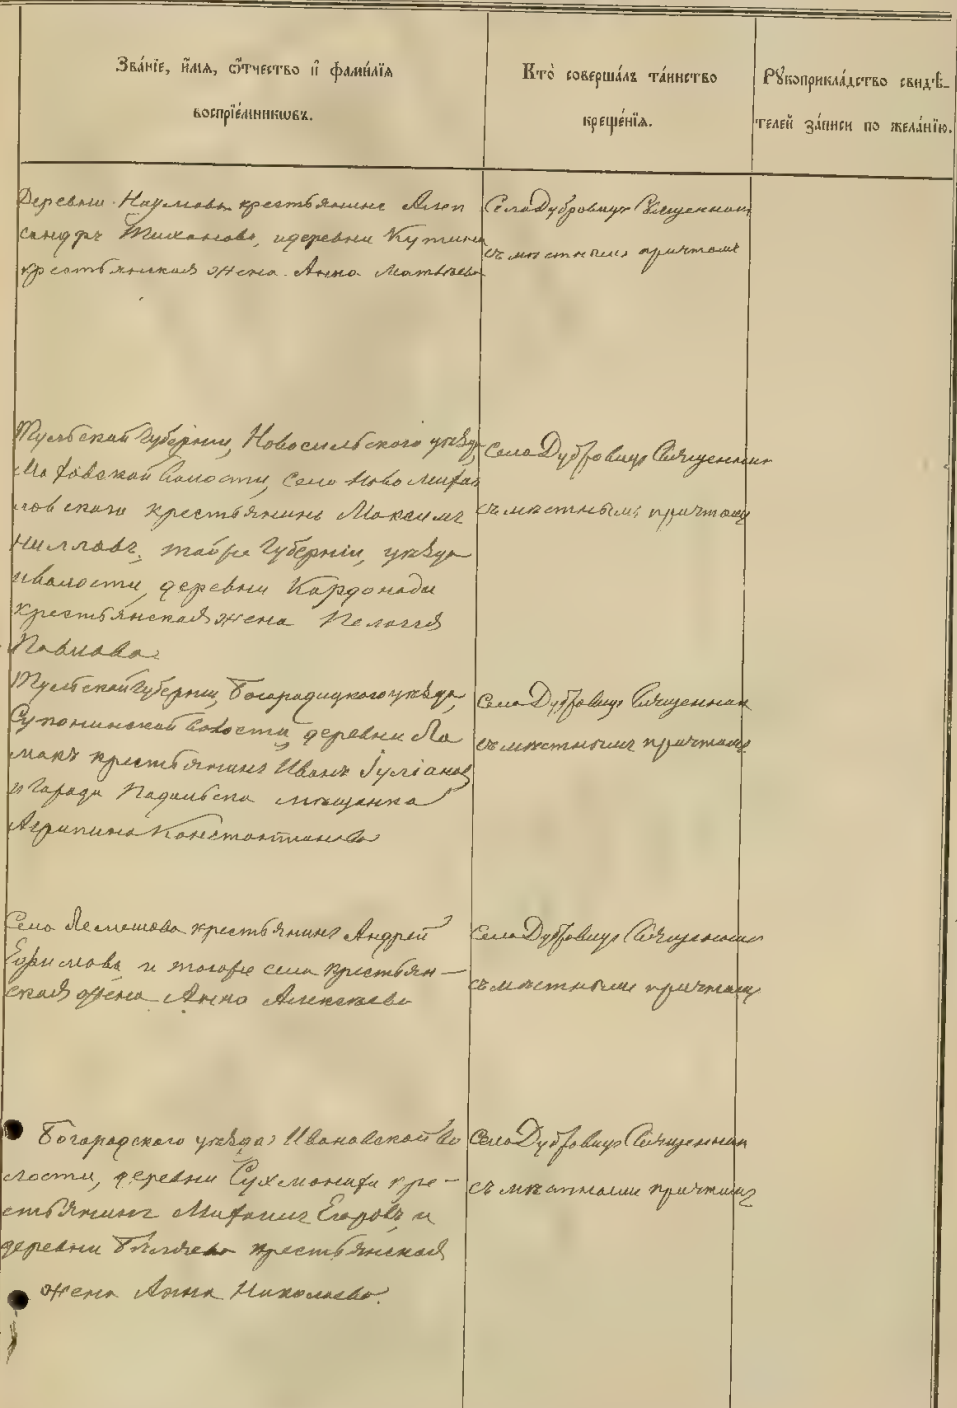 Зва́нїе, и҆́мѧ, ѻ҆́тчество и҆ фами́лїѧ
воспрїе́мникѡвъ.
Кто̀ соверша́лъ та́инство
креще́нїѧ.
Рꙋкоприкла́дство свидѣ-
телей за́писи по жела́нїю.
Деревни Наумова крестьянинъ Алек
сандръ Тихановъ, идеревни Кутина
крестьянская жена Анна Матвѣева
Села Дубровицъ Священникъ
съ мѣстнымъ причтомъ
Тульской Губерніи, Новосильского уѣзда,
волости, села Ново михай
ловского крестьянинъ Максимъ
тойже Губерніи, уѣзда
иволости, деревни
крестьянская жена Пелагея
Павлова.
Села Дубровицъ Священникъ
съ мѣстнымъ причтомъ
Тульской Губерніи, Богородицкого уѣзда,
волости, деревни Ло
макъ крестьянинъ Иванъ Іуліановъ
и Города Падольска мѣщанка
Агрипина Константинова
Села Дубровицъ Священникъ
съ мѣстнымъ причтомъ
Села Лемешова крестьянинъ Андрей
Ефимовъ и тогоже села крестьян-
ская жена Анна Алексѣева
Села Дубровицъ Священникъ
съ мѣстнымъ причтомъ
Богородского уѣзда Ивановской во
лости, деревни кре-
стьянинъ Михаилъ Егоровъ и
деревни Бѣляева крестьянская
жена Анна Николаева.
Села Дубровицъ Священникъ
съ мѣстнымъ причтомъ